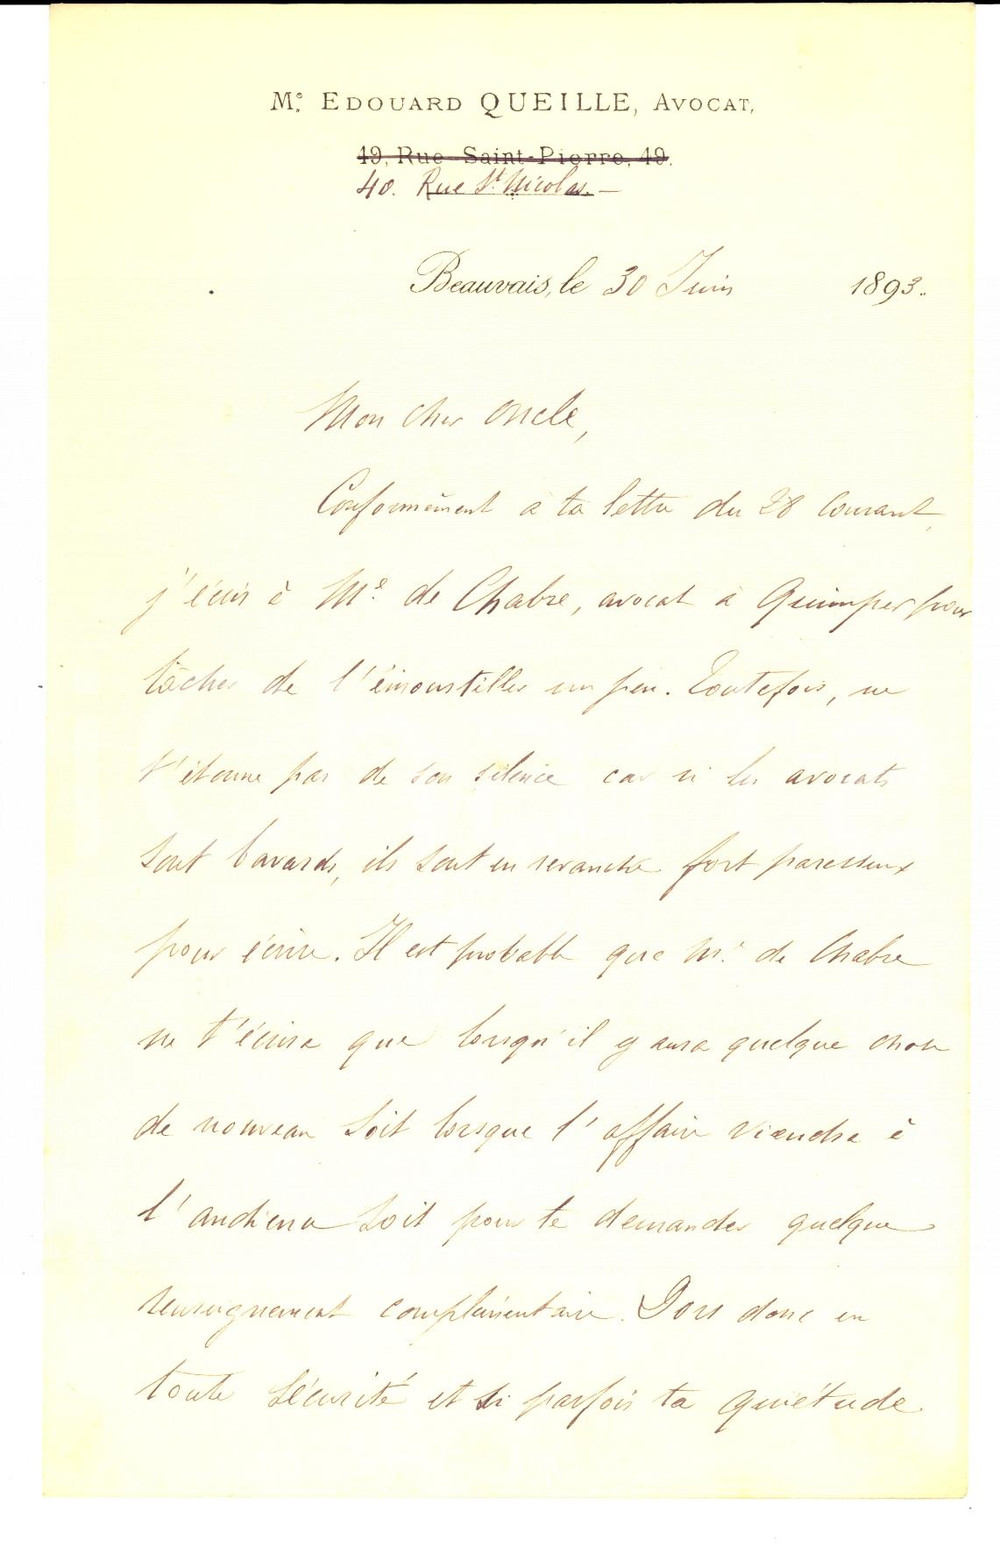 Me. EDOUARD QUEILLE, AVOCAT,
49, Rue Saint-Pierre, 49.
40. Rue St Nicolas. —
Beauvais, le 30 Juin 1893.
Mon cher Oncle,
Conformément à ta lettre du 28 courant,
j'écris à Me. de Chabre, avocat à Quimper pour
tâcher de l'émoustiller un peu. Toutefois, ne
t'étonne pas de son silence car si les avocats
sont bavards, ils sont en revanche fort paresseux
pour écrire. Il est probable que Me. de Chabre
ne t'écrira que lorsqu'il y aura quelque chose
de nouveau soit lorsque l'affaire viendra à
l'audience soit pour te demander quelque
renseignement complémentaire. Dors donc en
toute sécurité et si parfois ta quiétude